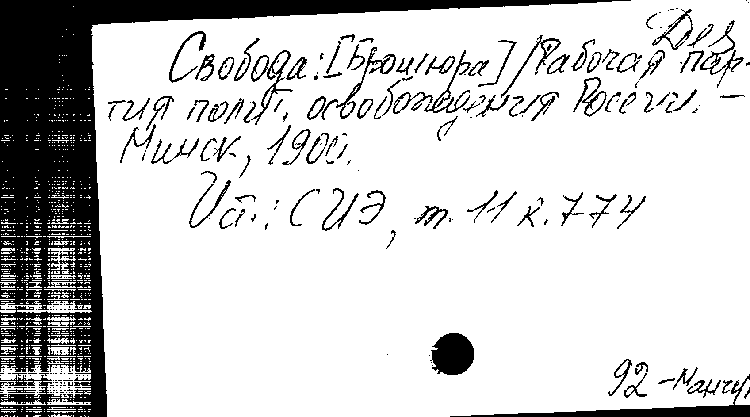 Деп
Свобода: [Брошюра] / Рабочая пар-
тия полит. освобождения России. –
Минск, 1900.
Ист.: СИЭ, т. 11 к. 774
92 – Манчу